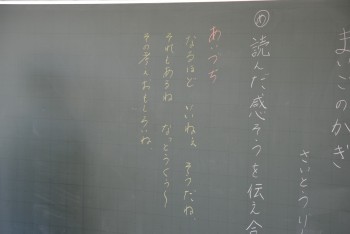 まいごのかぎ
さいとうり
め 読んだ感そうを伝え合
あいづち
なるほど いいねぇ そうだね
それもあるね なっとくぅ〜
その考えおもしろいね